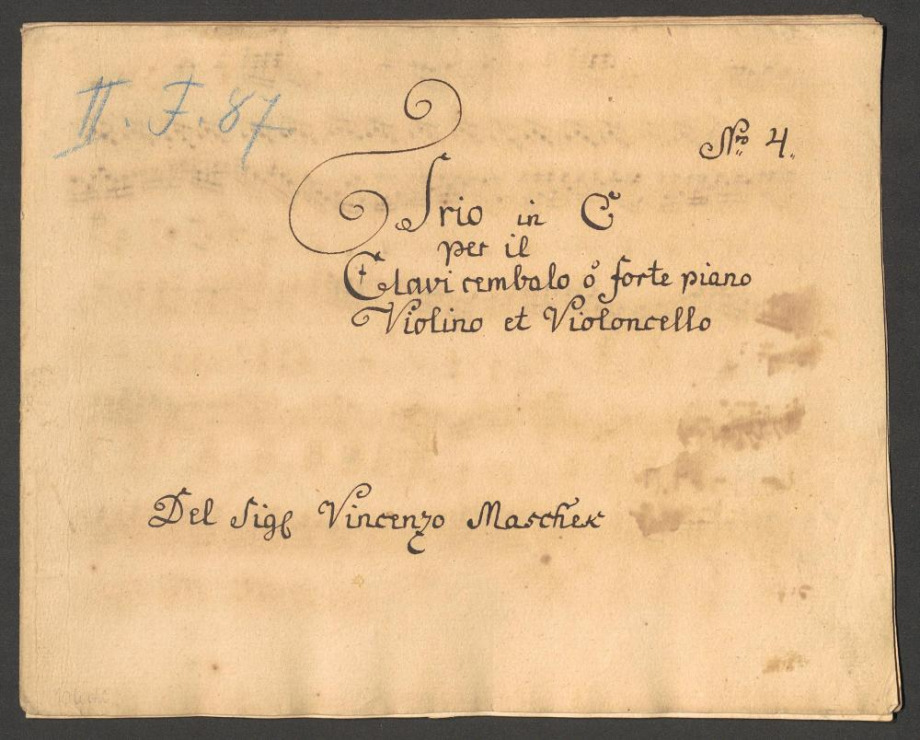 II. F. 87
Nro 4.
Trio in C
per il
Clavicembalo ò forte piano
Violino et Violoncello
Del Sigl Vincenzo Maschek